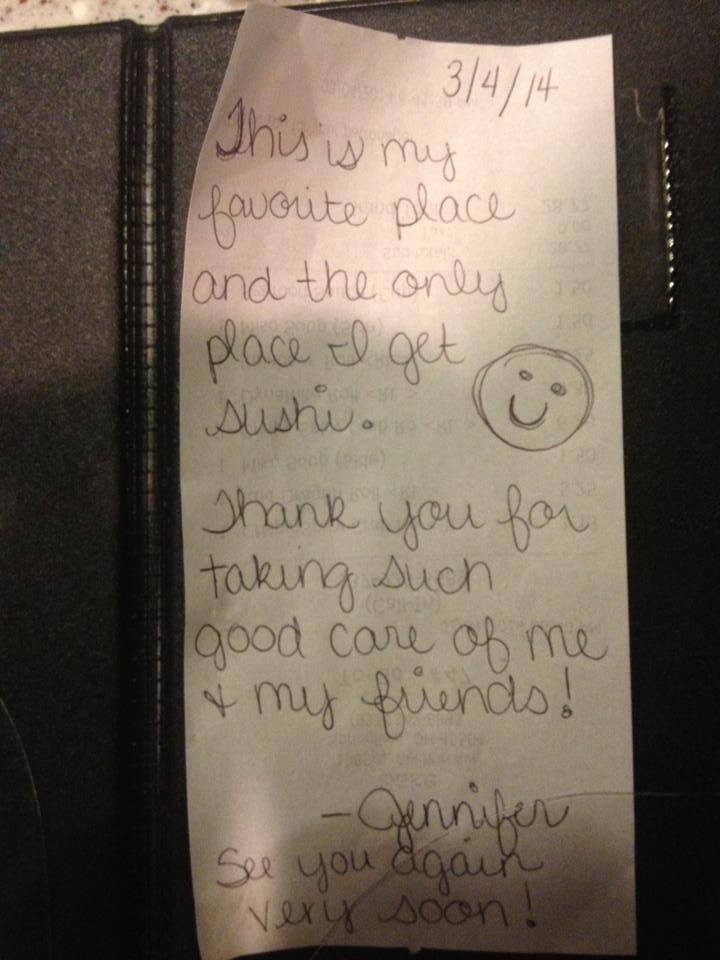 3/4/14
This is my
favorite place
and the only
place I get
sushi.
Thank you for
taking such
good care of me
& my friends!
- Jennifer
See you again
very soon!